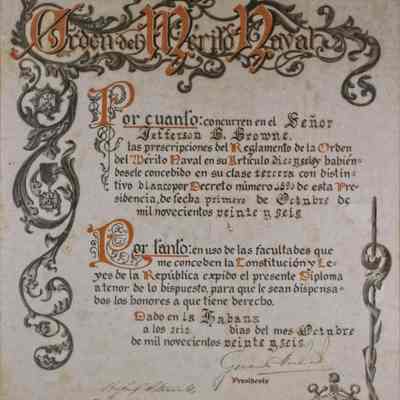 Orden del Mérito Naval
Por cuanto: concurren en el Señor
Jefferson B. Browne,
las prescripciones del Reglamento de la Orden
del Mérito Naval en su Artículo diez y seis y habién-
dosele concebido en su clase tercera con distin-
tivo blanco por Decreto número de esta Pre-
sidencia, de fecha primero de Octubre de
mil novecientos veinte y seis
Por tanto: en uso de las facultades que
me conceden la Constitución y Le-
yes de la República expido el presente Diploma
a tenor de lo dispuesto, para que le sean dispensa-
dos los honores a que tiene derecho.
Dado en la Habana
a los seis días del mes Octubre
de mil novecientos veinte y seis
Presidente